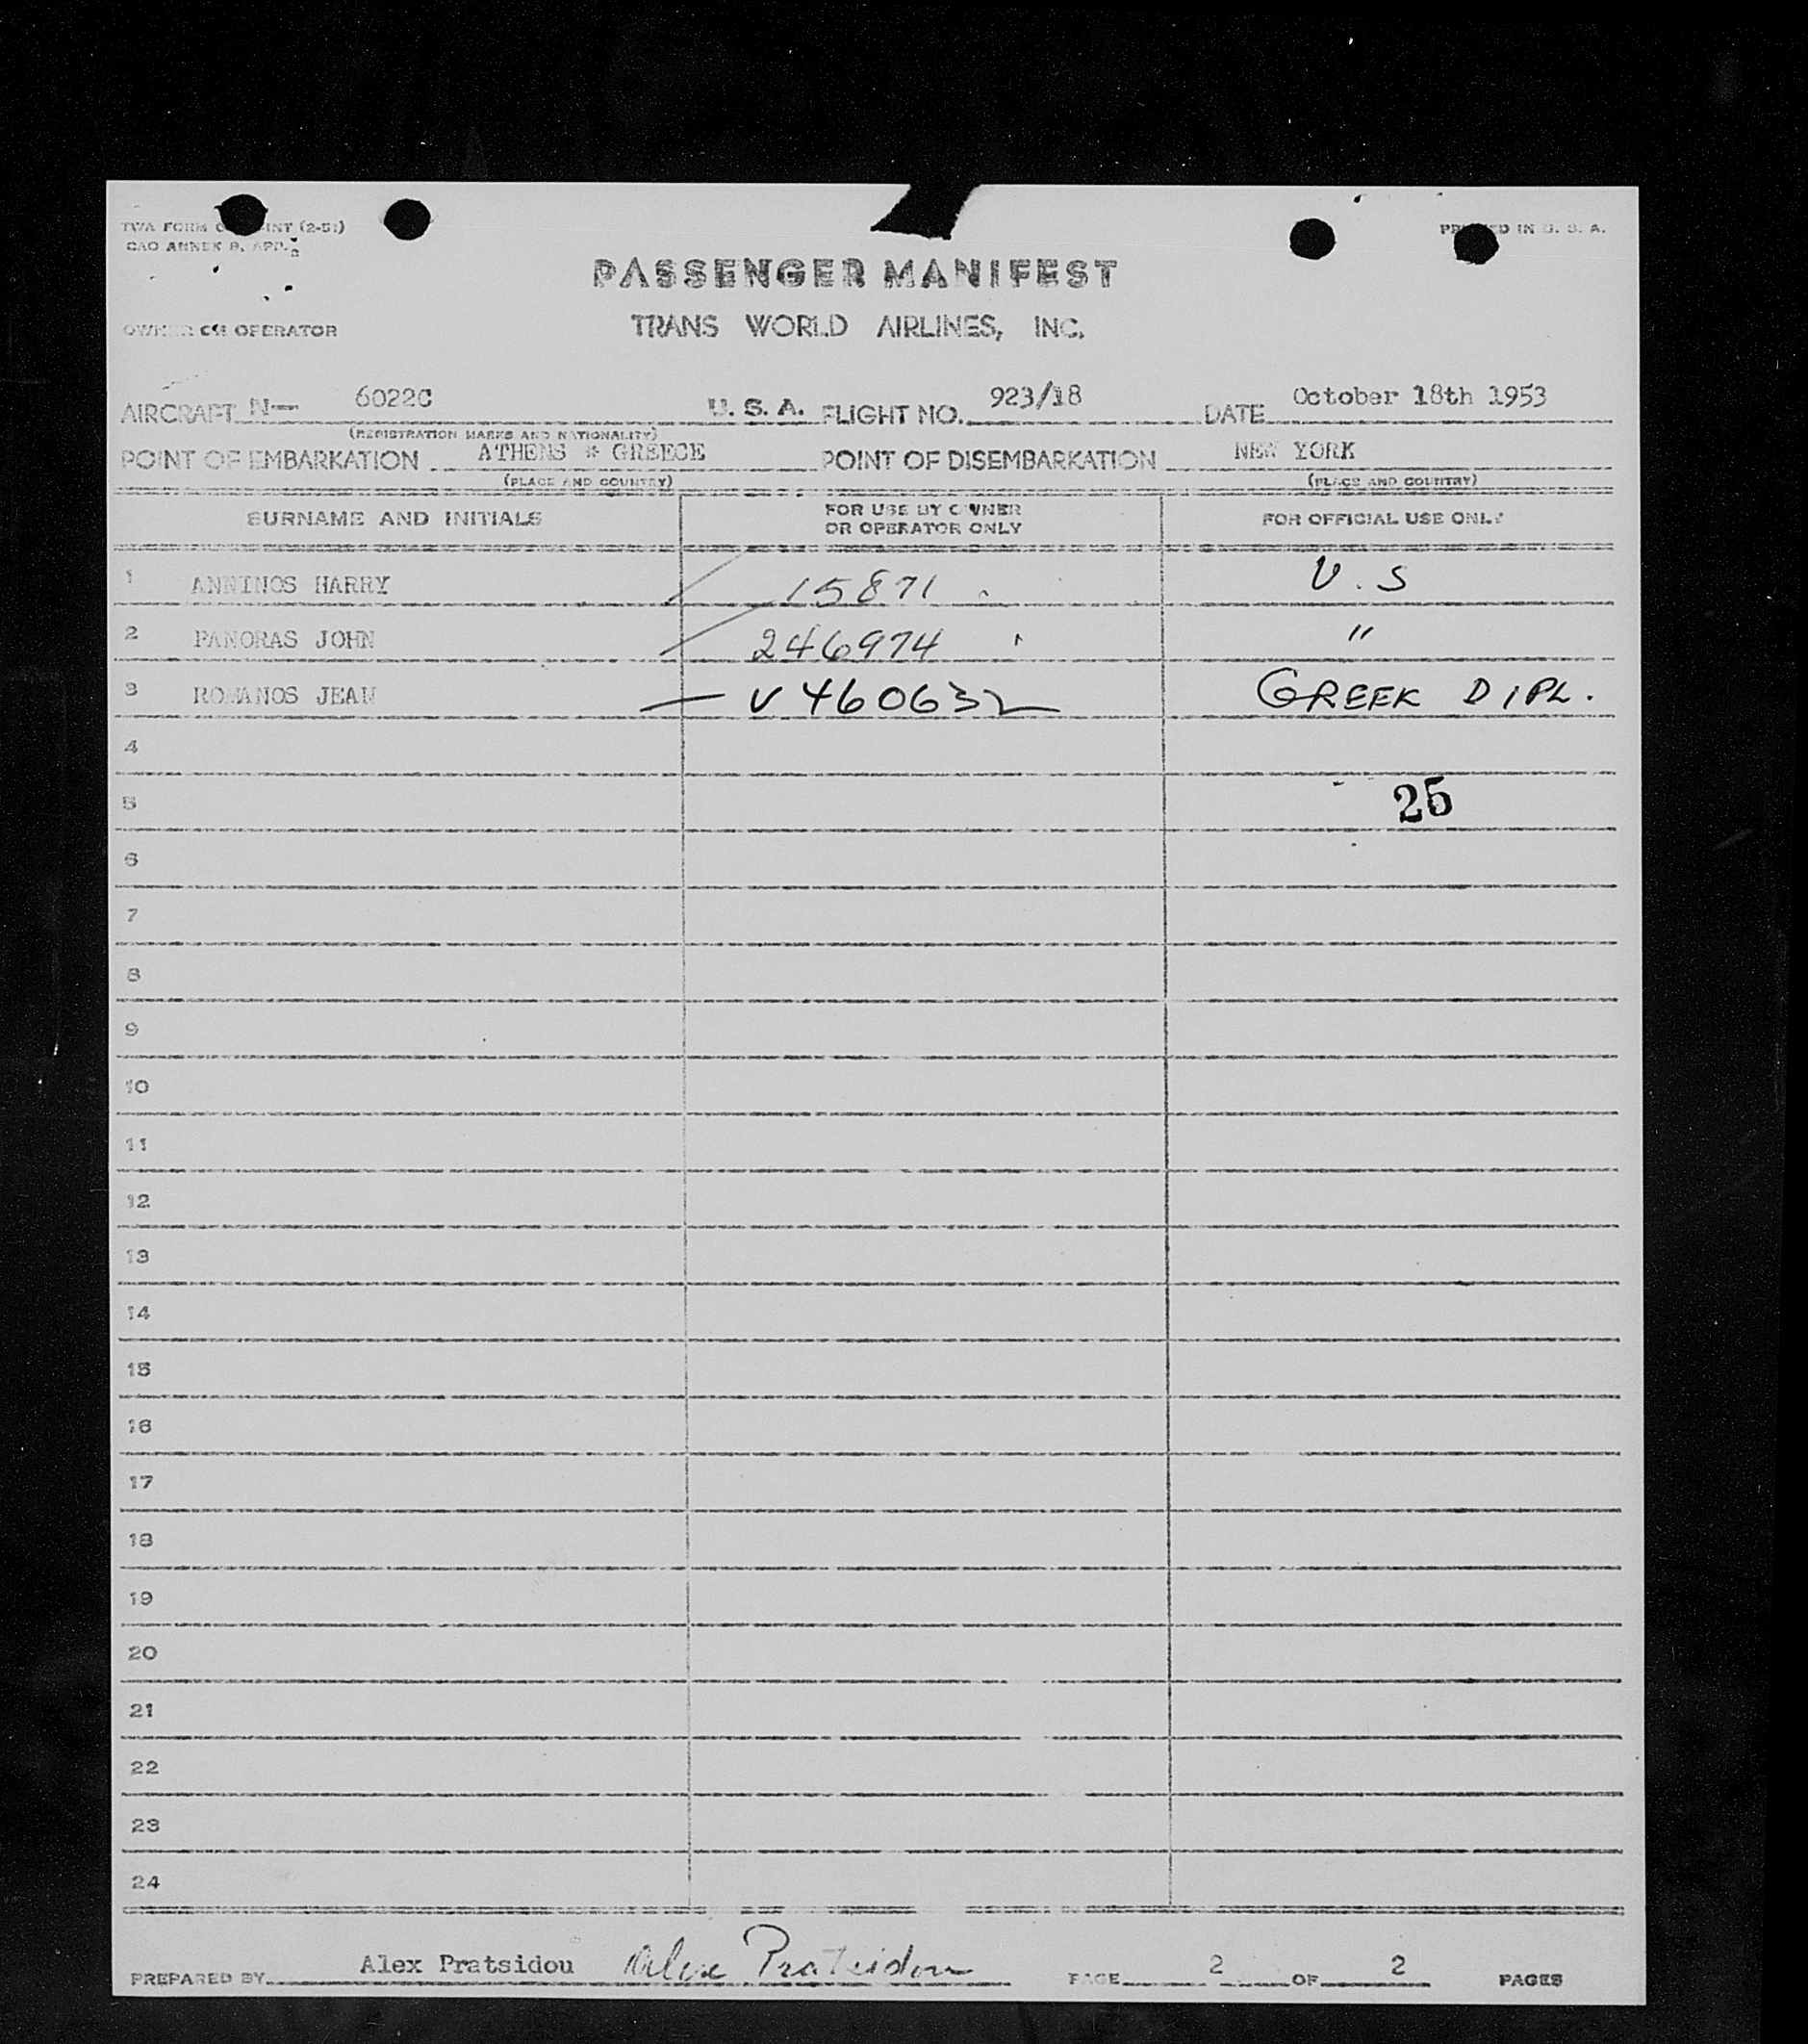 TWA FORM INT (2-51)
CAO ANNEX 9, APP. 2
PRINTED IN U. S. A.
PASSENGER MANIFEST
OWNER OR OPERATOR TRANS WORLD AIRLINES, INC.
AIRCRAFT N— 6022C U. S. A. FLIGHT NO. 923/18 DATE October 18th 1953
(REGISTRATION MARKS AND NATIONALITY)
POINT OF EMBARKATION ATHENS * GREECE POINT OF DISEMBARKATION NEW YORK
(PLACE AND COUNTRY) (PLACE AND COUNTRY)
SURNAME AND INITIALS FOR USE BY OWNER OR OPERATOR ONLY FOR OFFICIAL USE ONLY
1 ANNINOS HARRY 15871 U.S
2 PANORAS JOHN 246974 "
3 ROMANOS JEAN V460632 GREEK DIPL.
4
5 25
6
7
8
9
10
11
12
13
14
15
16
17
18
19
20
21
22
23
24
PREPARED BY Alex Pratsidou Alex Pratsidou PAGE 2 OF 2 PAGES